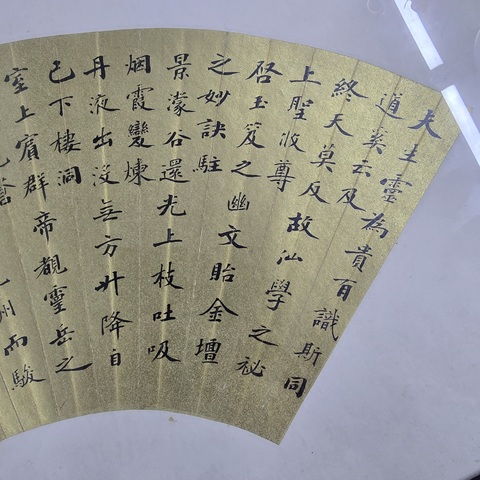 夫生靈為貴有識斯同
道矣云及
終天莫反故仙學之祕
上聖攸尊
啓玉笈之幽文貽金壇
之妙訣駐
景濛谷還光上枝吐吸
烟霞變煉
丹液出沒無方升降自
己下棲洞
室上賓群帝覩靈岳之
州而駿